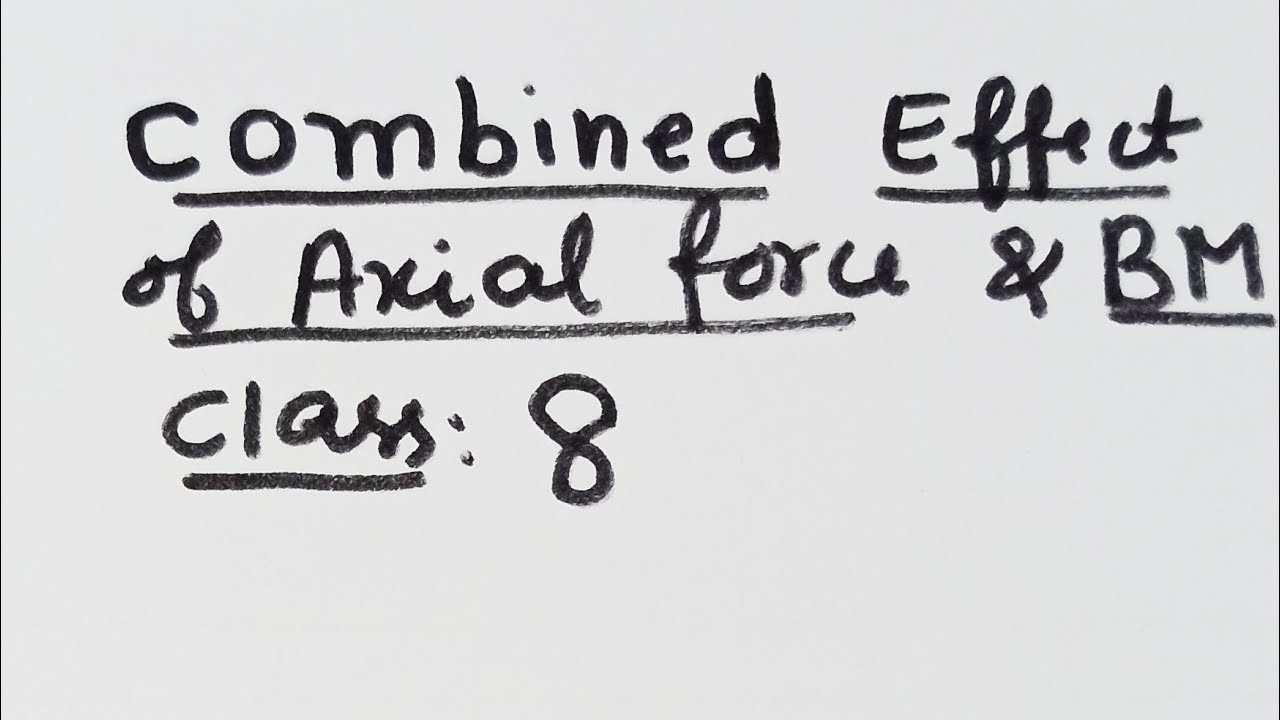 Combined Effect
of Axial force & BM
Class: 8